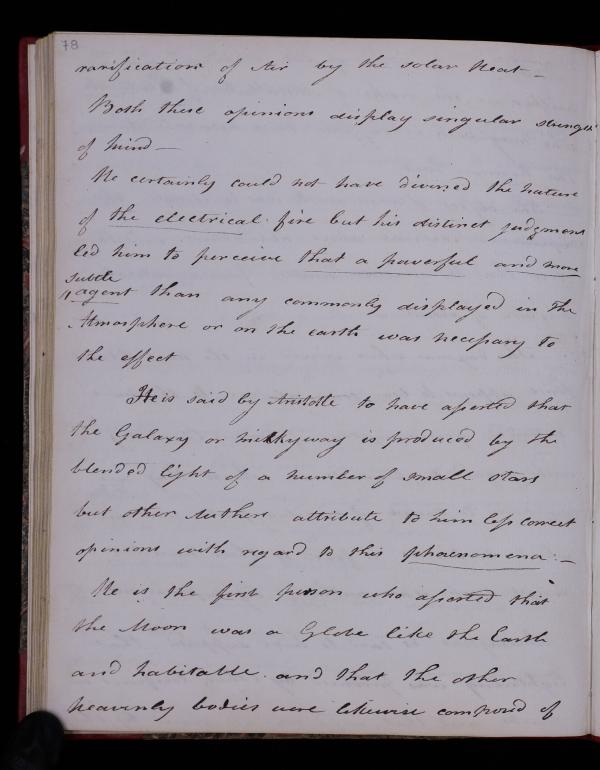 78
rarifications of Air by the solar Heat –
Both these opinions display singular strength
of mind –
He certainly could not have divined the nature
of the electrical fire but his distinct judgment
led him to perceive that a powerful and more
subtle
agent than any commonly displayed in the
Atmosphere or on the earth was necessary to
the effect
He is said by Aristotle to have asserted that
the Galaxy or milkyway is produced by the
blended light of a number of small stars
but other Authors attribute to him less correct
opinions with regard to this phaenomena : –
He is the first person who asserted that
the Moon was a Globe like the Earth
and habitable and that the other
heavenly bodies were likewise composed of